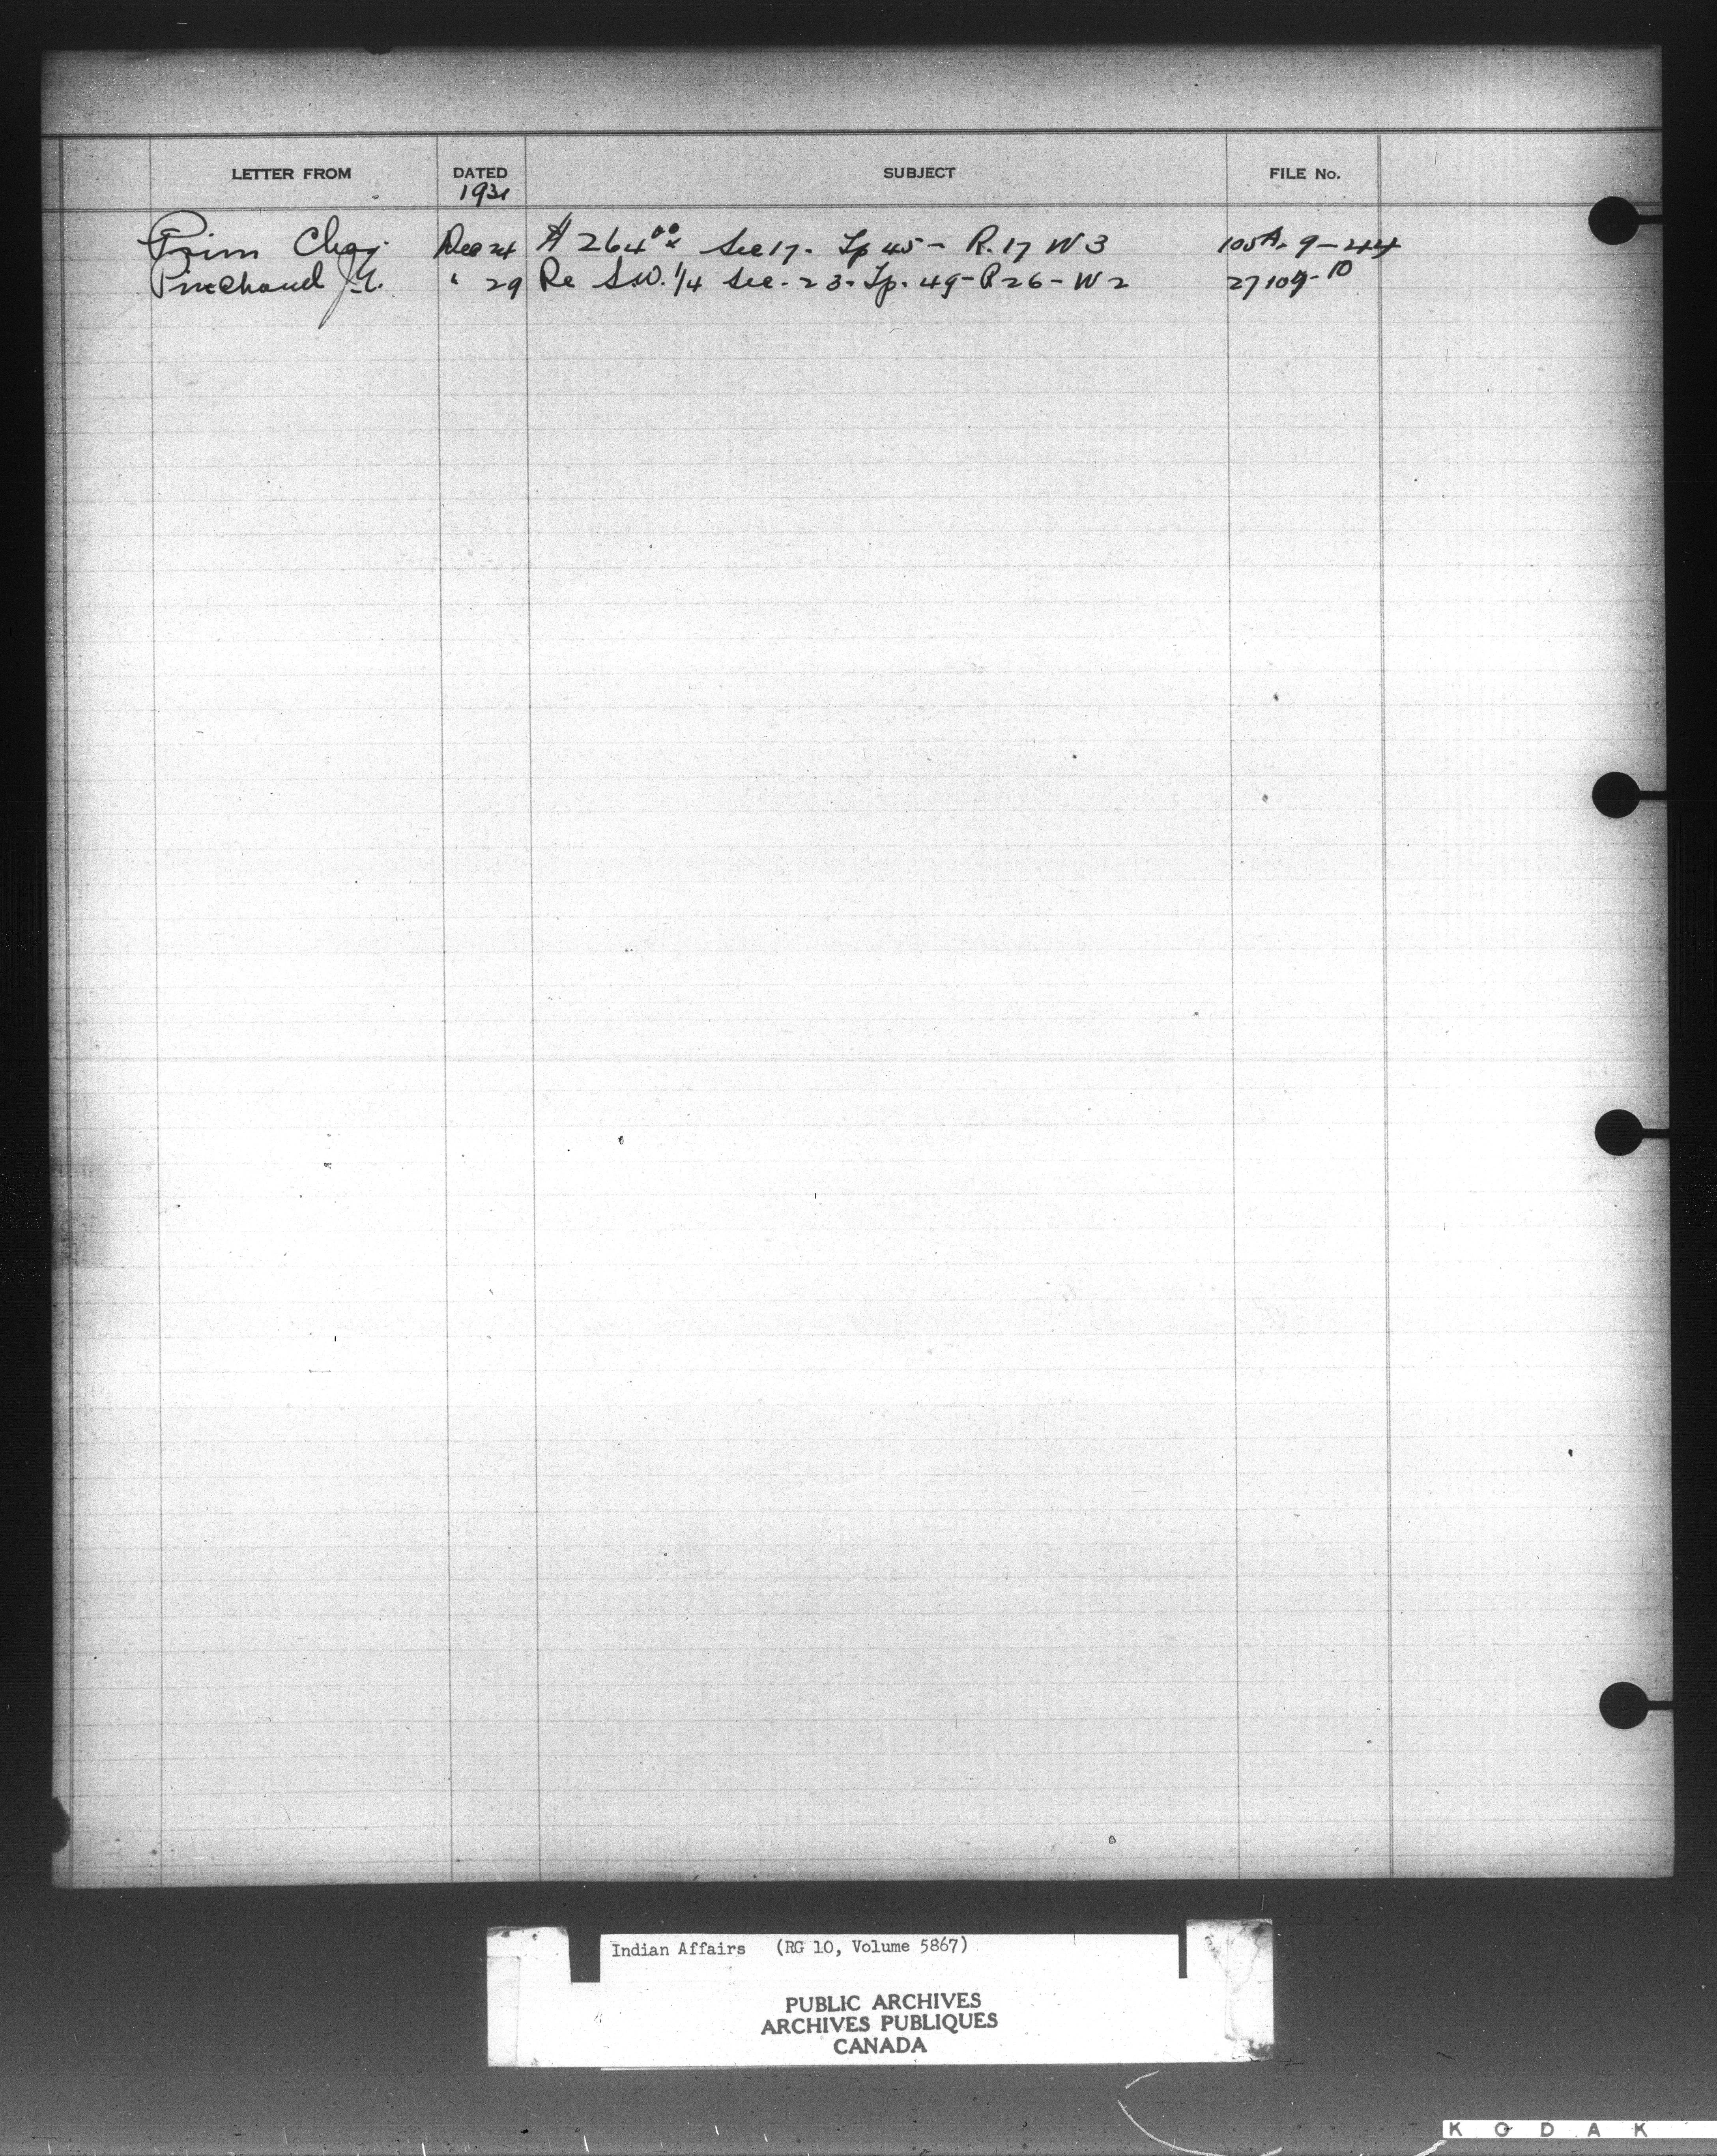 LETTER FROM DATED SUBJECT FILE No.
1931
Prim Chas. Dec 24 $264.00 Sec 17. Tp 45 - R. 17 W 3 105A-9-44
J. " 29 Re S.W. 1/4 Sec. 23 - Tp. 49 - R 26 - W 2 27109-10
Indian Affairs (RG 10, Volume 5867)
PUBLIC ARCHIVES
ARCHIVES PUBLIQUES
CANADA
KODAK